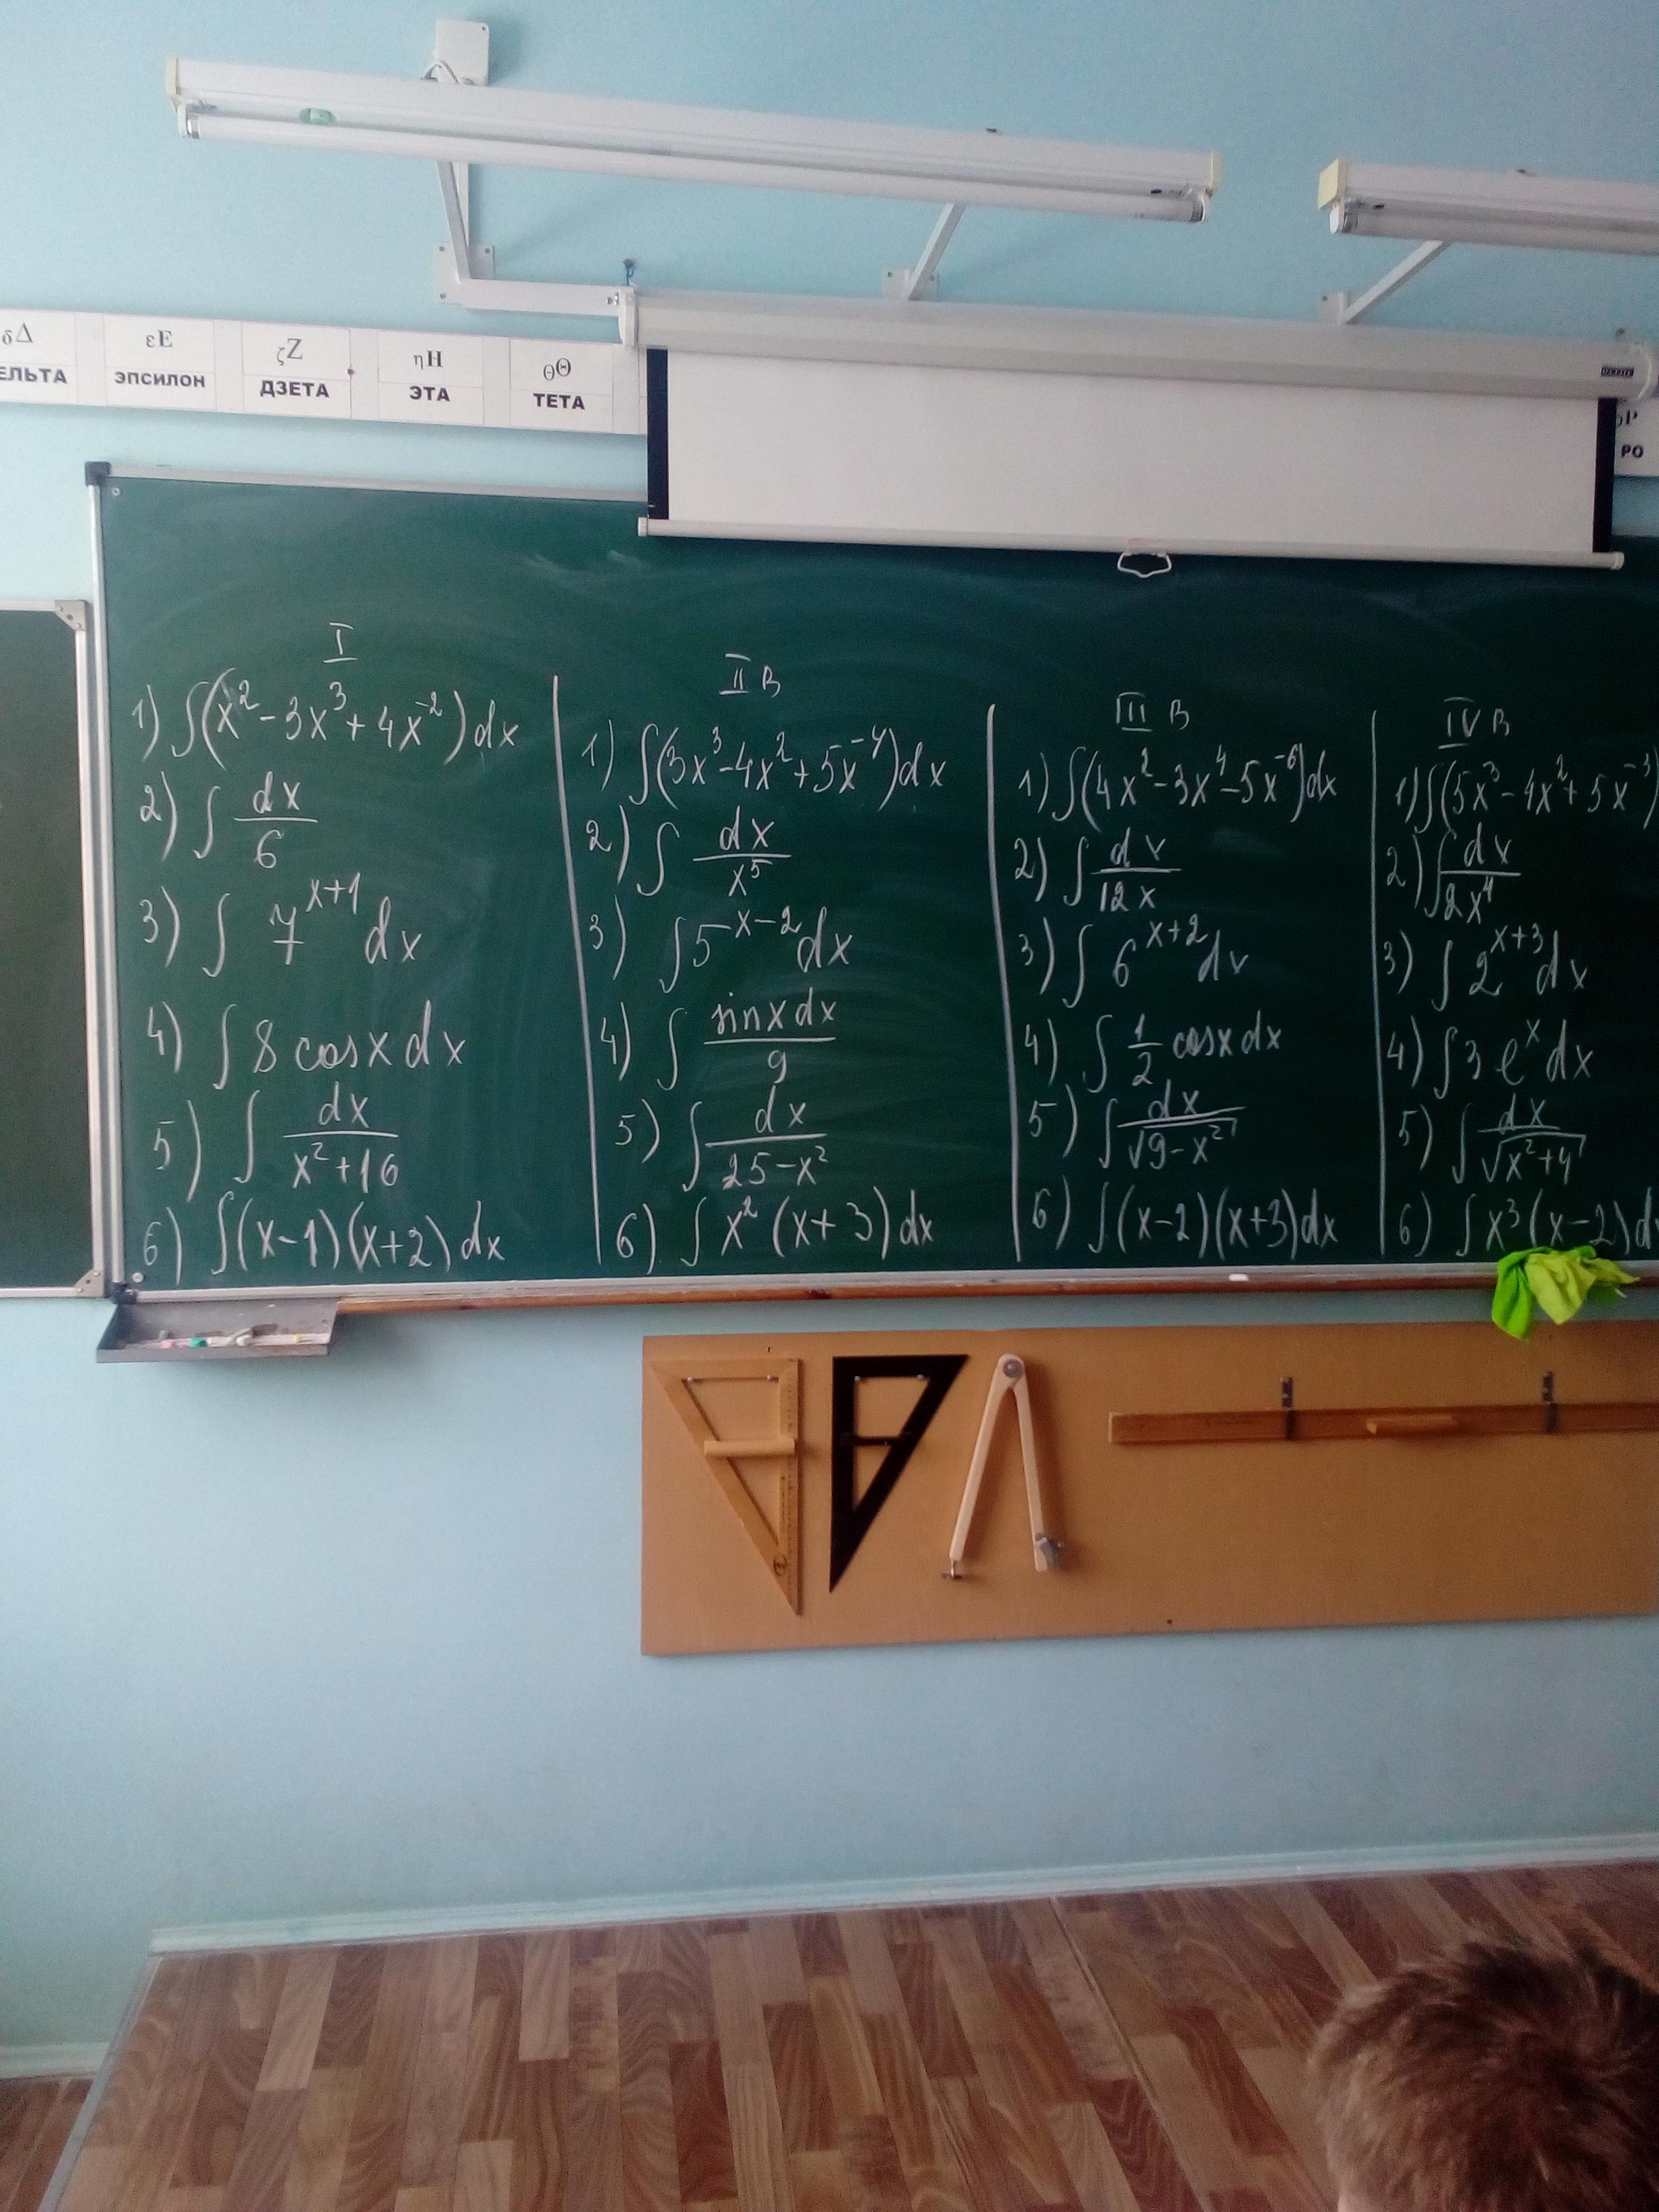 δΔ
ЕЛЬТА
εΕ
ЭПСИЛОН
ζΖ
ДЗЕТА
ηΗ
ЭТА
θΘ
ТЕТА
Ρ
РО
I
1) ∫(x² - 3x³ + 4x⁻²) dx
2) ∫ dx/6
3) ∫ 7^(x+1) dx
4) ∫ 8 cosx dx
5) ∫ dx/(x² + 16)
6) ∫(x-1)(x+2) dx
II В
1) ∫(3x³ - 4x² + 5x⁻⁴) dx
2) ∫ dx/x⁵
3) ∫ 5^(x-2) dx
4) ∫ sinx dx/9
5) ∫ dx/(25 - x²)
6) ∫ x² (x+3) dx
III В
1) ∫(4x² - 3x⁴ - 5x⁻⁶) dx
2) ∫ dx/12x
3) ∫ 6^(x+2) dx
4) ∫ 1/2 cosx dx
5) ∫ dx/√(9 - x²)
6) ∫(x-2)(x+3) dx
IV В
1) ∫(5x³ - 4x² + 5x⁻³)
2) ∫ dx/2x⁴
3) ∫ 2^(x+3) dx
4) ∫ 3 e^x dx
5) ∫ dx/√(x² + 4)
6) ∫ x³ (x-2) d